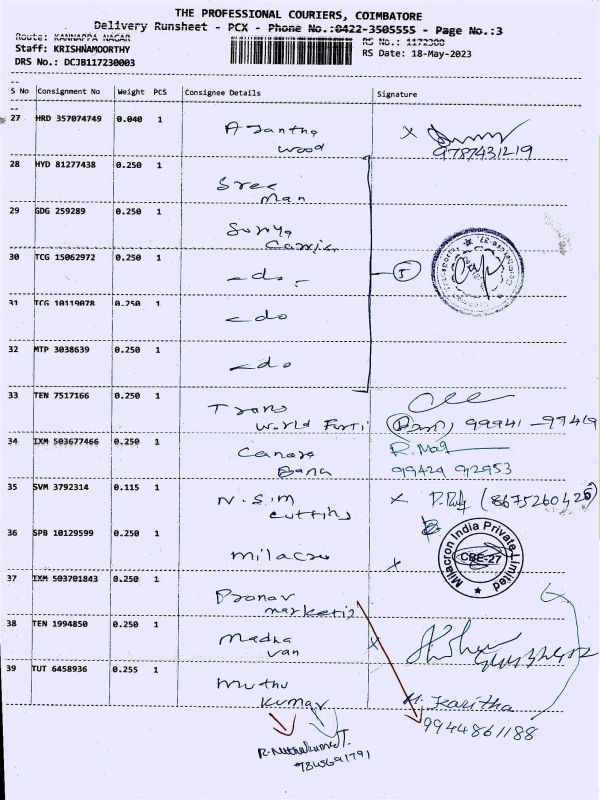 THE PROFESSIONAL COURIERS, COIMBATORE
Delivery Runsheet - PCX - Phone No.:0422-3505555 - Page No.:3
Route: KANNAPPA NAGAR
RS No.: 1172300
Staff: KRISHNAMOORTHY
RS Date: 18-May-2023
DRS No.: DCJB117230003
S No Consignment No Weight PCS Consignee Details Signature
27 HRD 357074749 0.040 1
Ajantha
wood
9787431219
28 HYD 81277438 0.250 1
Sree
man
29 GDG 259289 0.250 1
Surya
30 TCG 15062972 0.250 1
-do-
31 TCG 10119078 0.250 1
-do
32 MTP 3038639 0.250 1
-do
33 TEN 7517166 0.250 1
Trans
World Forti
99941-97419
34 IXM 503677466 0.250 1
Canara
Bank
R.Mal
99424 92953
35 SVM 3792314 0.115 1
N.S.M
cutting
(8675260426)
36 SPB 10129599 0.250 1
milacro
Milacron India Private Limited
CBE-27
37 IXM 503701843 0.250 1
Pranav
marketig
38 TEN 1994850 0.250 1
Madha
van
39 TUT 6458936 0.255 1
Muthu
Kumar
M. Karitha
9944861188